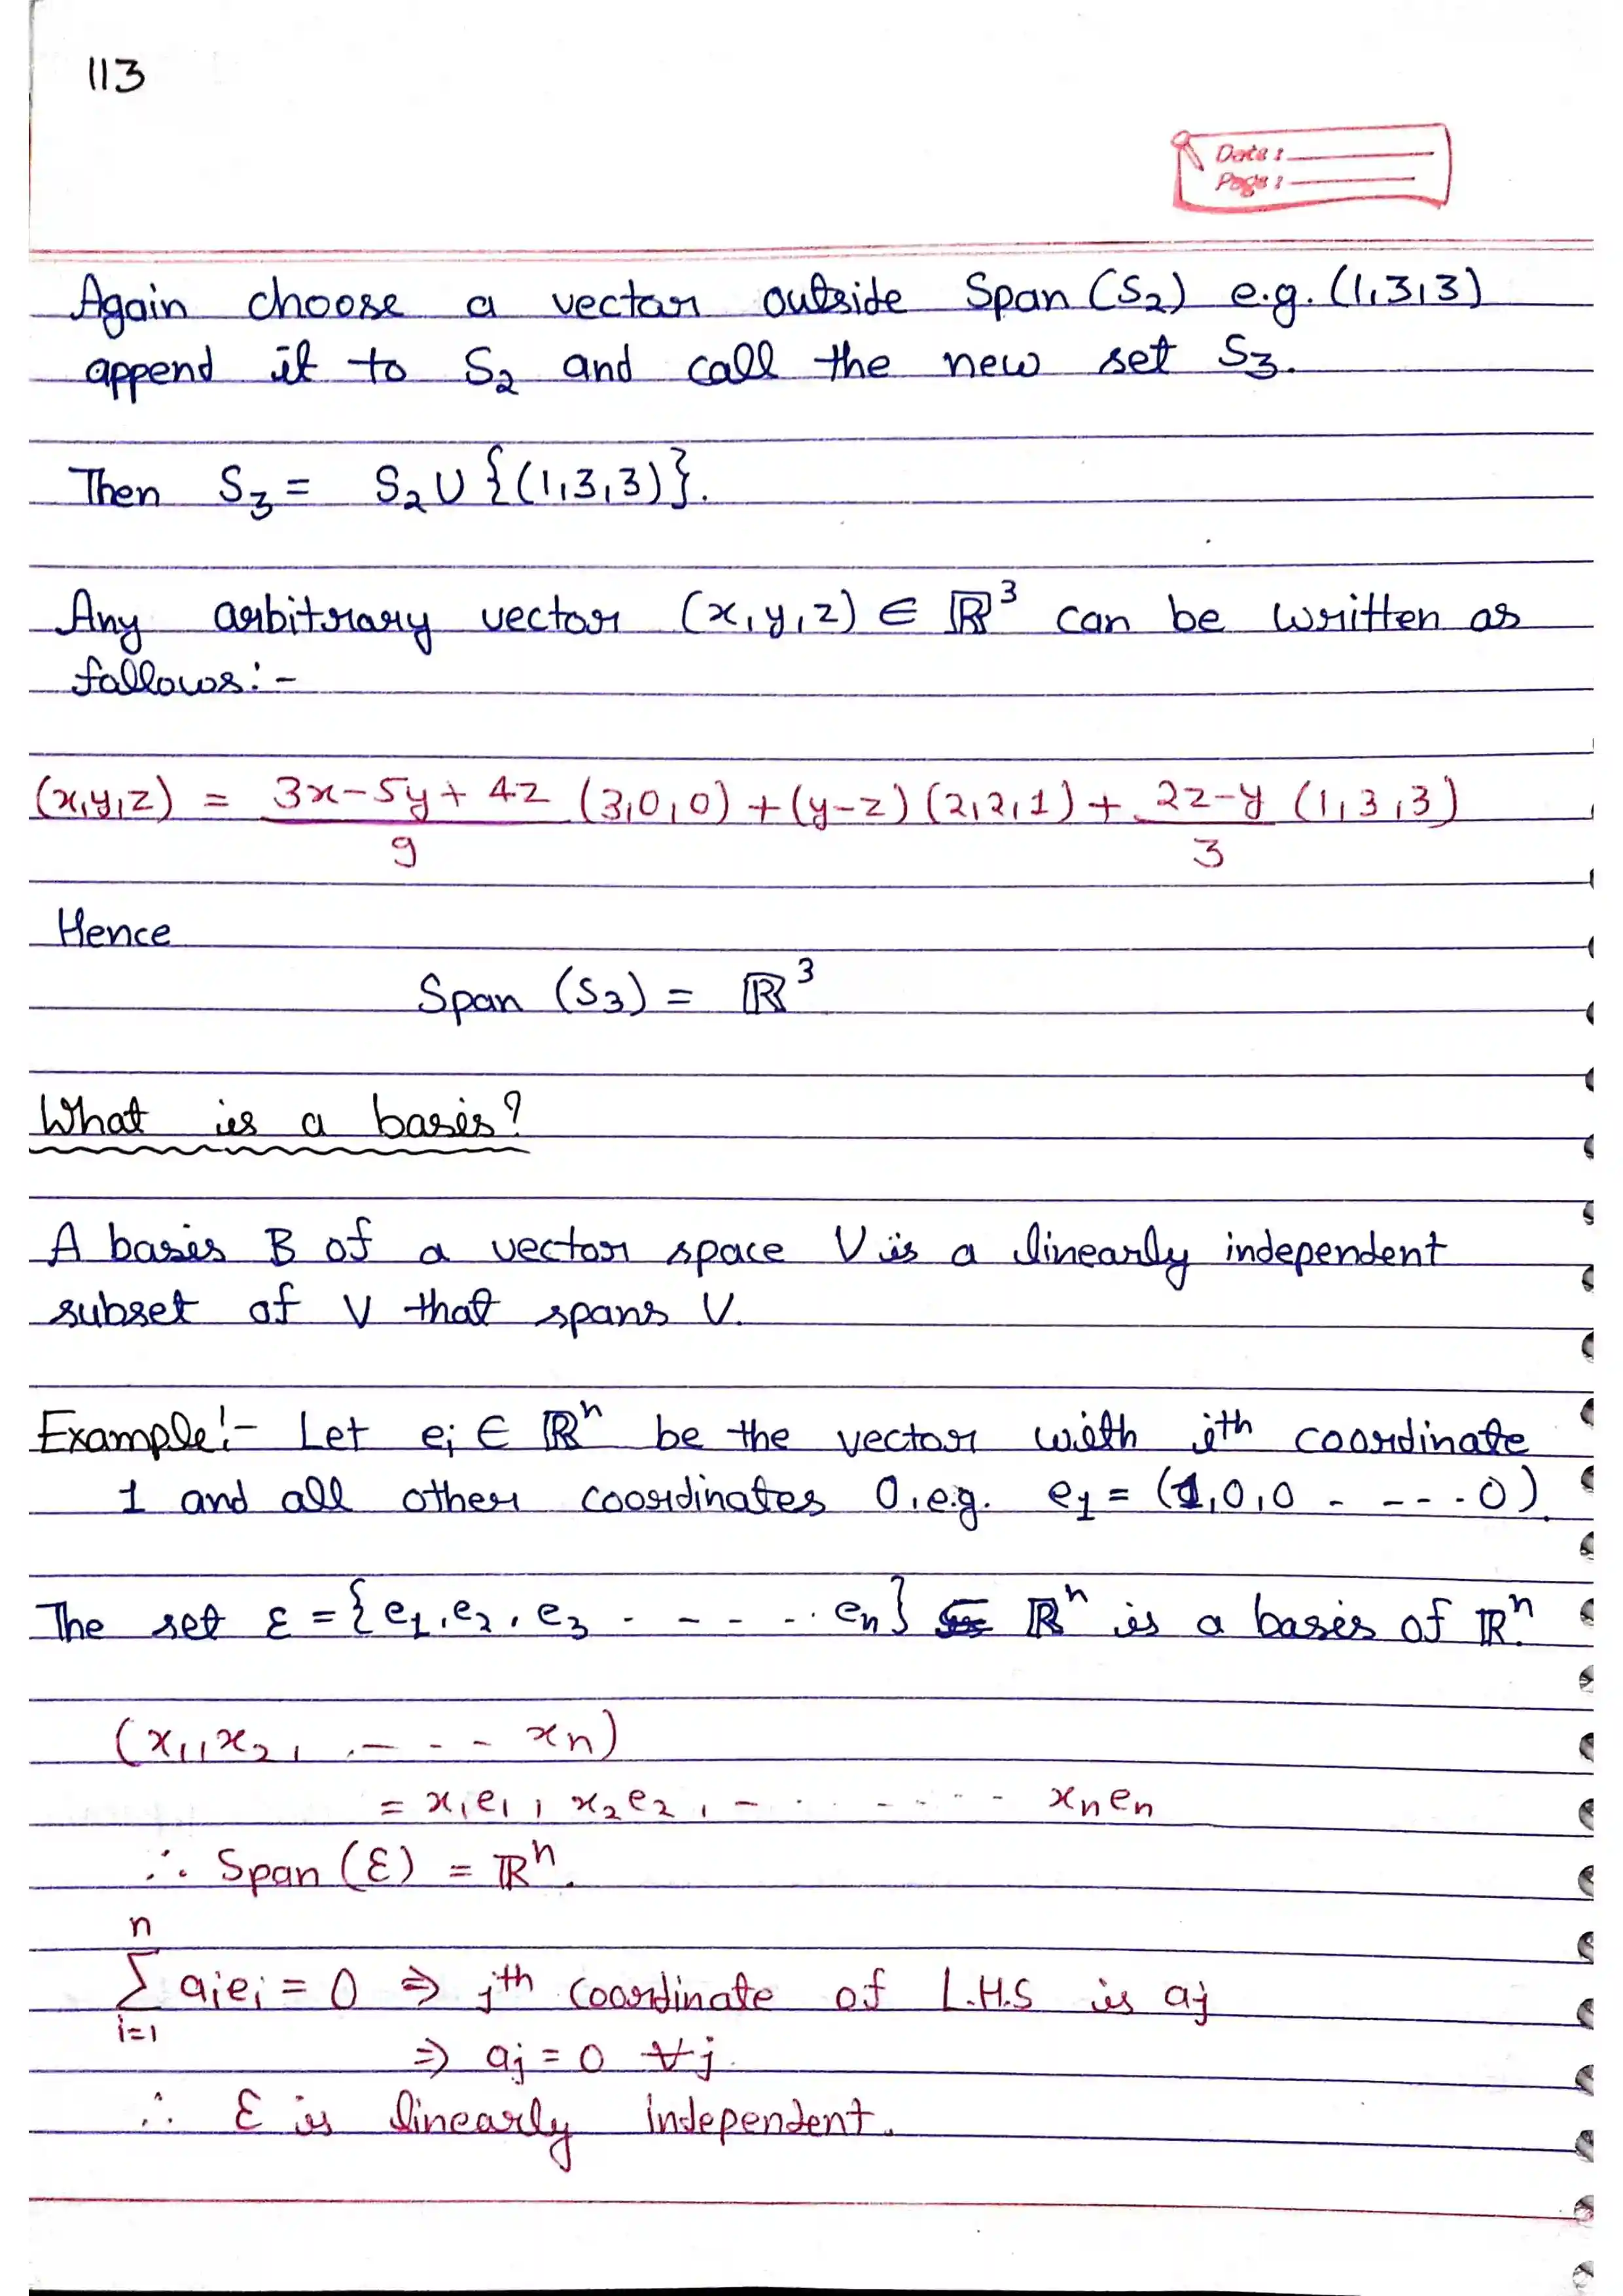 113
Date:
Page:
Again choose a vector outside Span (S₂) e.g. (1,3,3)
append it to S₂ and call the new set S₃.
Then S₃ = S₂ ∪ {(1,3,3)}.
Any arbitrary vector (x,y,z) ∈ ℝ³ can be written as
follows:-
(x,y,z) = (3x-5y+4z)/9 (3,0,0) + (y-z) (2,2,1) + (2z-y)/3 (1,3,3)
Hence
Span (S₃) = ℝ³
What is a basis?
A basis B of a vector space V is a linearly independent
subset of V that spans V.
Example:- Let eᵢ ∈ ℝⁿ be the vector with ith coordinate
1 and all other coordinates 0, e.g. e₁ = (1,0,0 - --- . 0).
The set ε = {e₁, e₂, e₃ . - - - .. eₙ} ⊆ ℝⁿ is a basis of ℝⁿ.
(x₁, x₂, .- - - xₙ)
= x₁e₁, x₂e₂, - . . - . - . - - xₙeₙ
∴ Span (ε) = ℝⁿ.
n
∑ aᵢeᵢ = 0 ⇒ jᵗʰ coordinate of L.H.S is aⱼ
i=1
⇒ aⱼ = 0 ∀ j.
∴ ε is linearly independent.